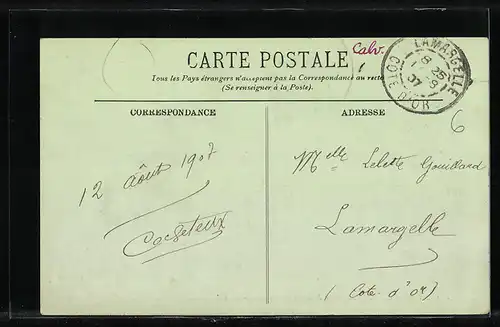 Calv.
CARTE POSTALE
Tous les Pays étrangers n'acceptent pas la Correspondance au recto
(Se renseigner à la Poste).
LAMARGELLE
COTE D'OR
CORRESPONDANCE
ADRESSE
6
12 août 1907
Melle Gouillard
Lamargelle
(Cote d'Or)